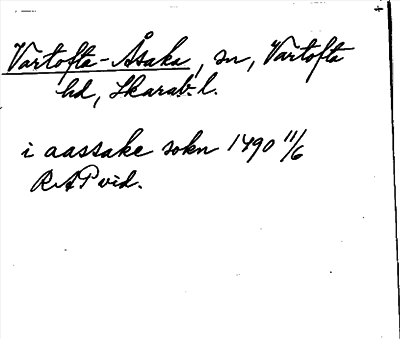 Vartofta-Åsaka, sn, Vartofta
hd, Skarab. l.
i aassake sokn 1490 11/6
RAP vid.